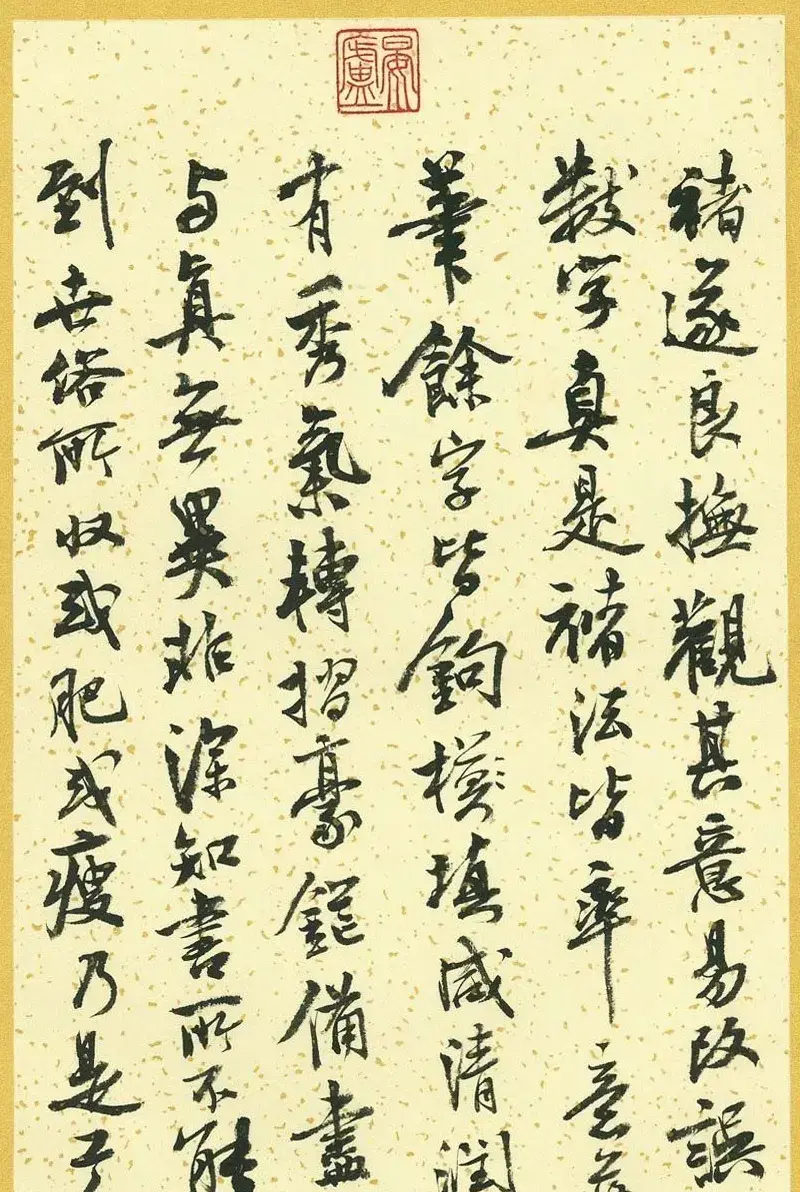 褚遂良撫觀其意易改誤
數字真是褚法皆率意落
筆餘字皆鉤横填咸清潤
有秀氣轉摺豪鋩備盡
与真無異非深知書所不能
到世俗所収或肥或瘦乃是工